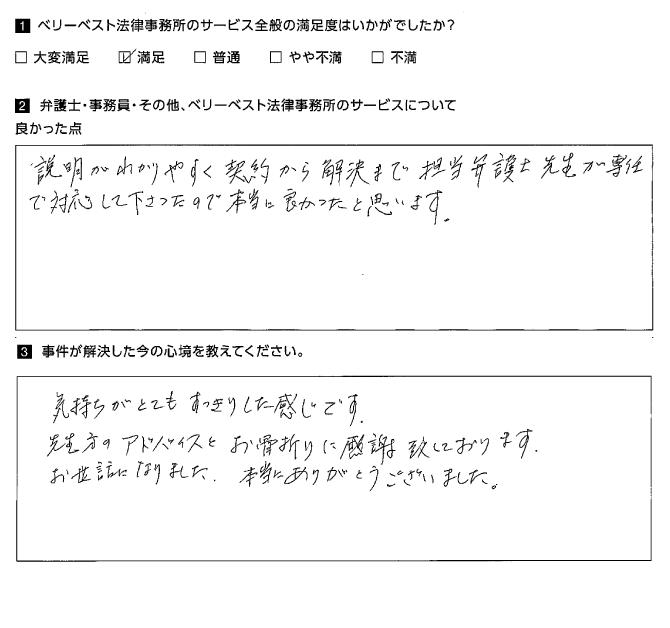 1 ベリーベスト法律事務所のサービス全般の満足度はいかがでしたか?
□ 大変満足 ☑ 満足 □ 普通 □ やや不満 □ 不満
2 弁護士・事務員・その他、ベリーベスト法律事務所のサービスについて
良かった点
説明がわかりやすく契約から解決まで担当弁護士先生が専任
で対応して下さったので本当に良かったと思います。
3 事件が解決した今の心境を教えてください。
気持ちがとてもすっきりした感じです.
先生方のアドバイスとお骨折りに感謝致しております.
お世話になりました. 本当にありがとうございました。